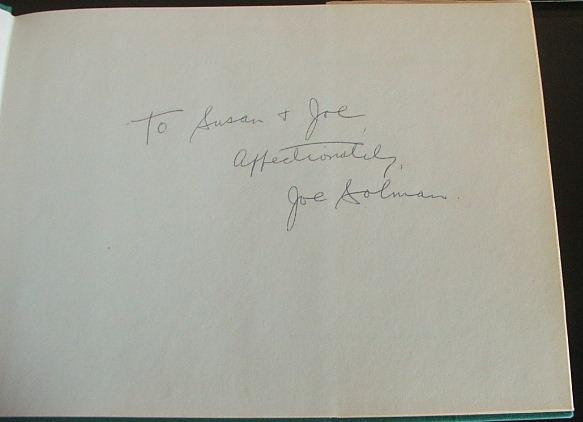 To Susan + Joe,
Affectionately,
Joe Solman.